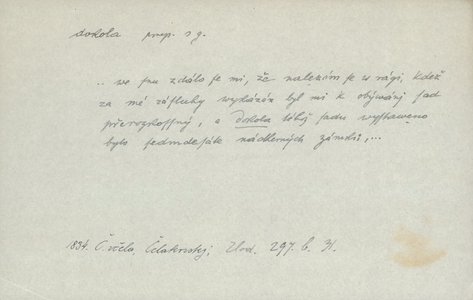 dokola prep. s g.
.. we snu zdálo se mi, že nalezám se w ráji, kdež
za mé zásluhy wykázán byl mi k obýwání sad
přerozkošný, a dokola toho sadu wystaweno
bylo sedmdesáte nádherných zámků,...
1834. Č. včela. Čelakovský, 297. b. 31.